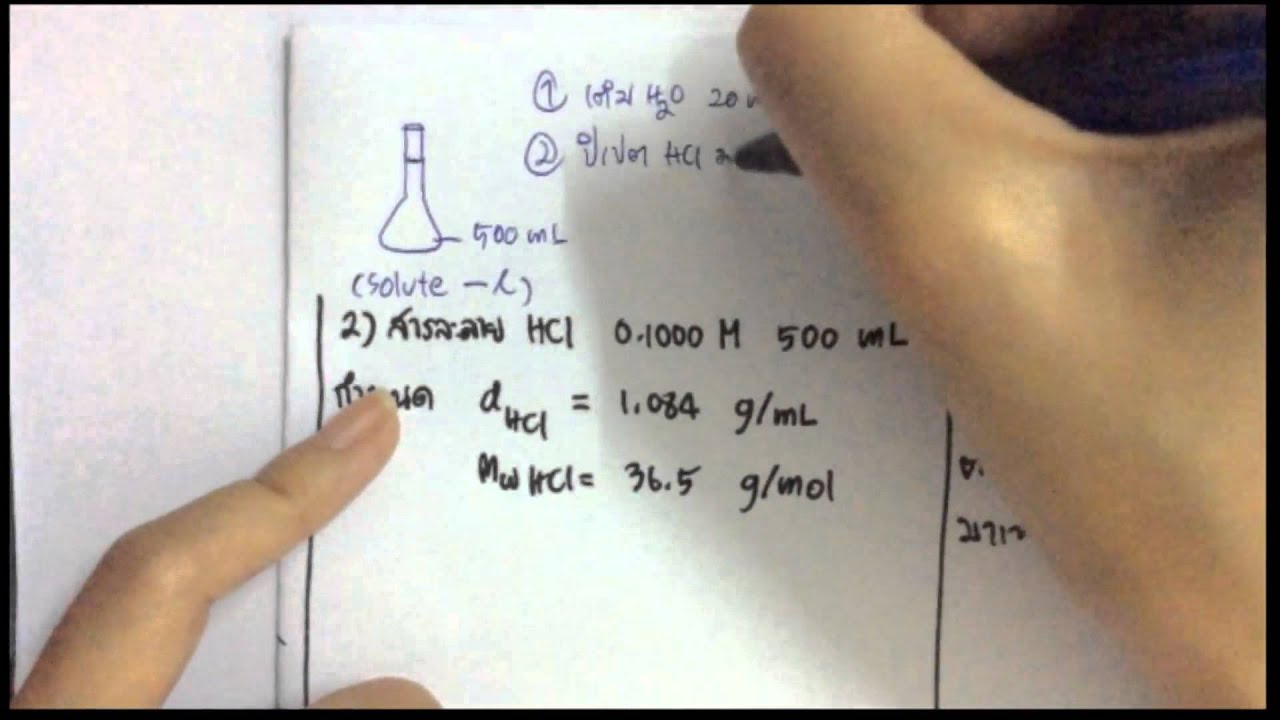 ① เติม H₂O 20
② ปิเปต HCl
500 mL
(solute – l)
2) สารละลาย HCl 0.1000 M 500 mL
d HCl = 1.084 g/mL
Mw HCl = 36.5 g/mol